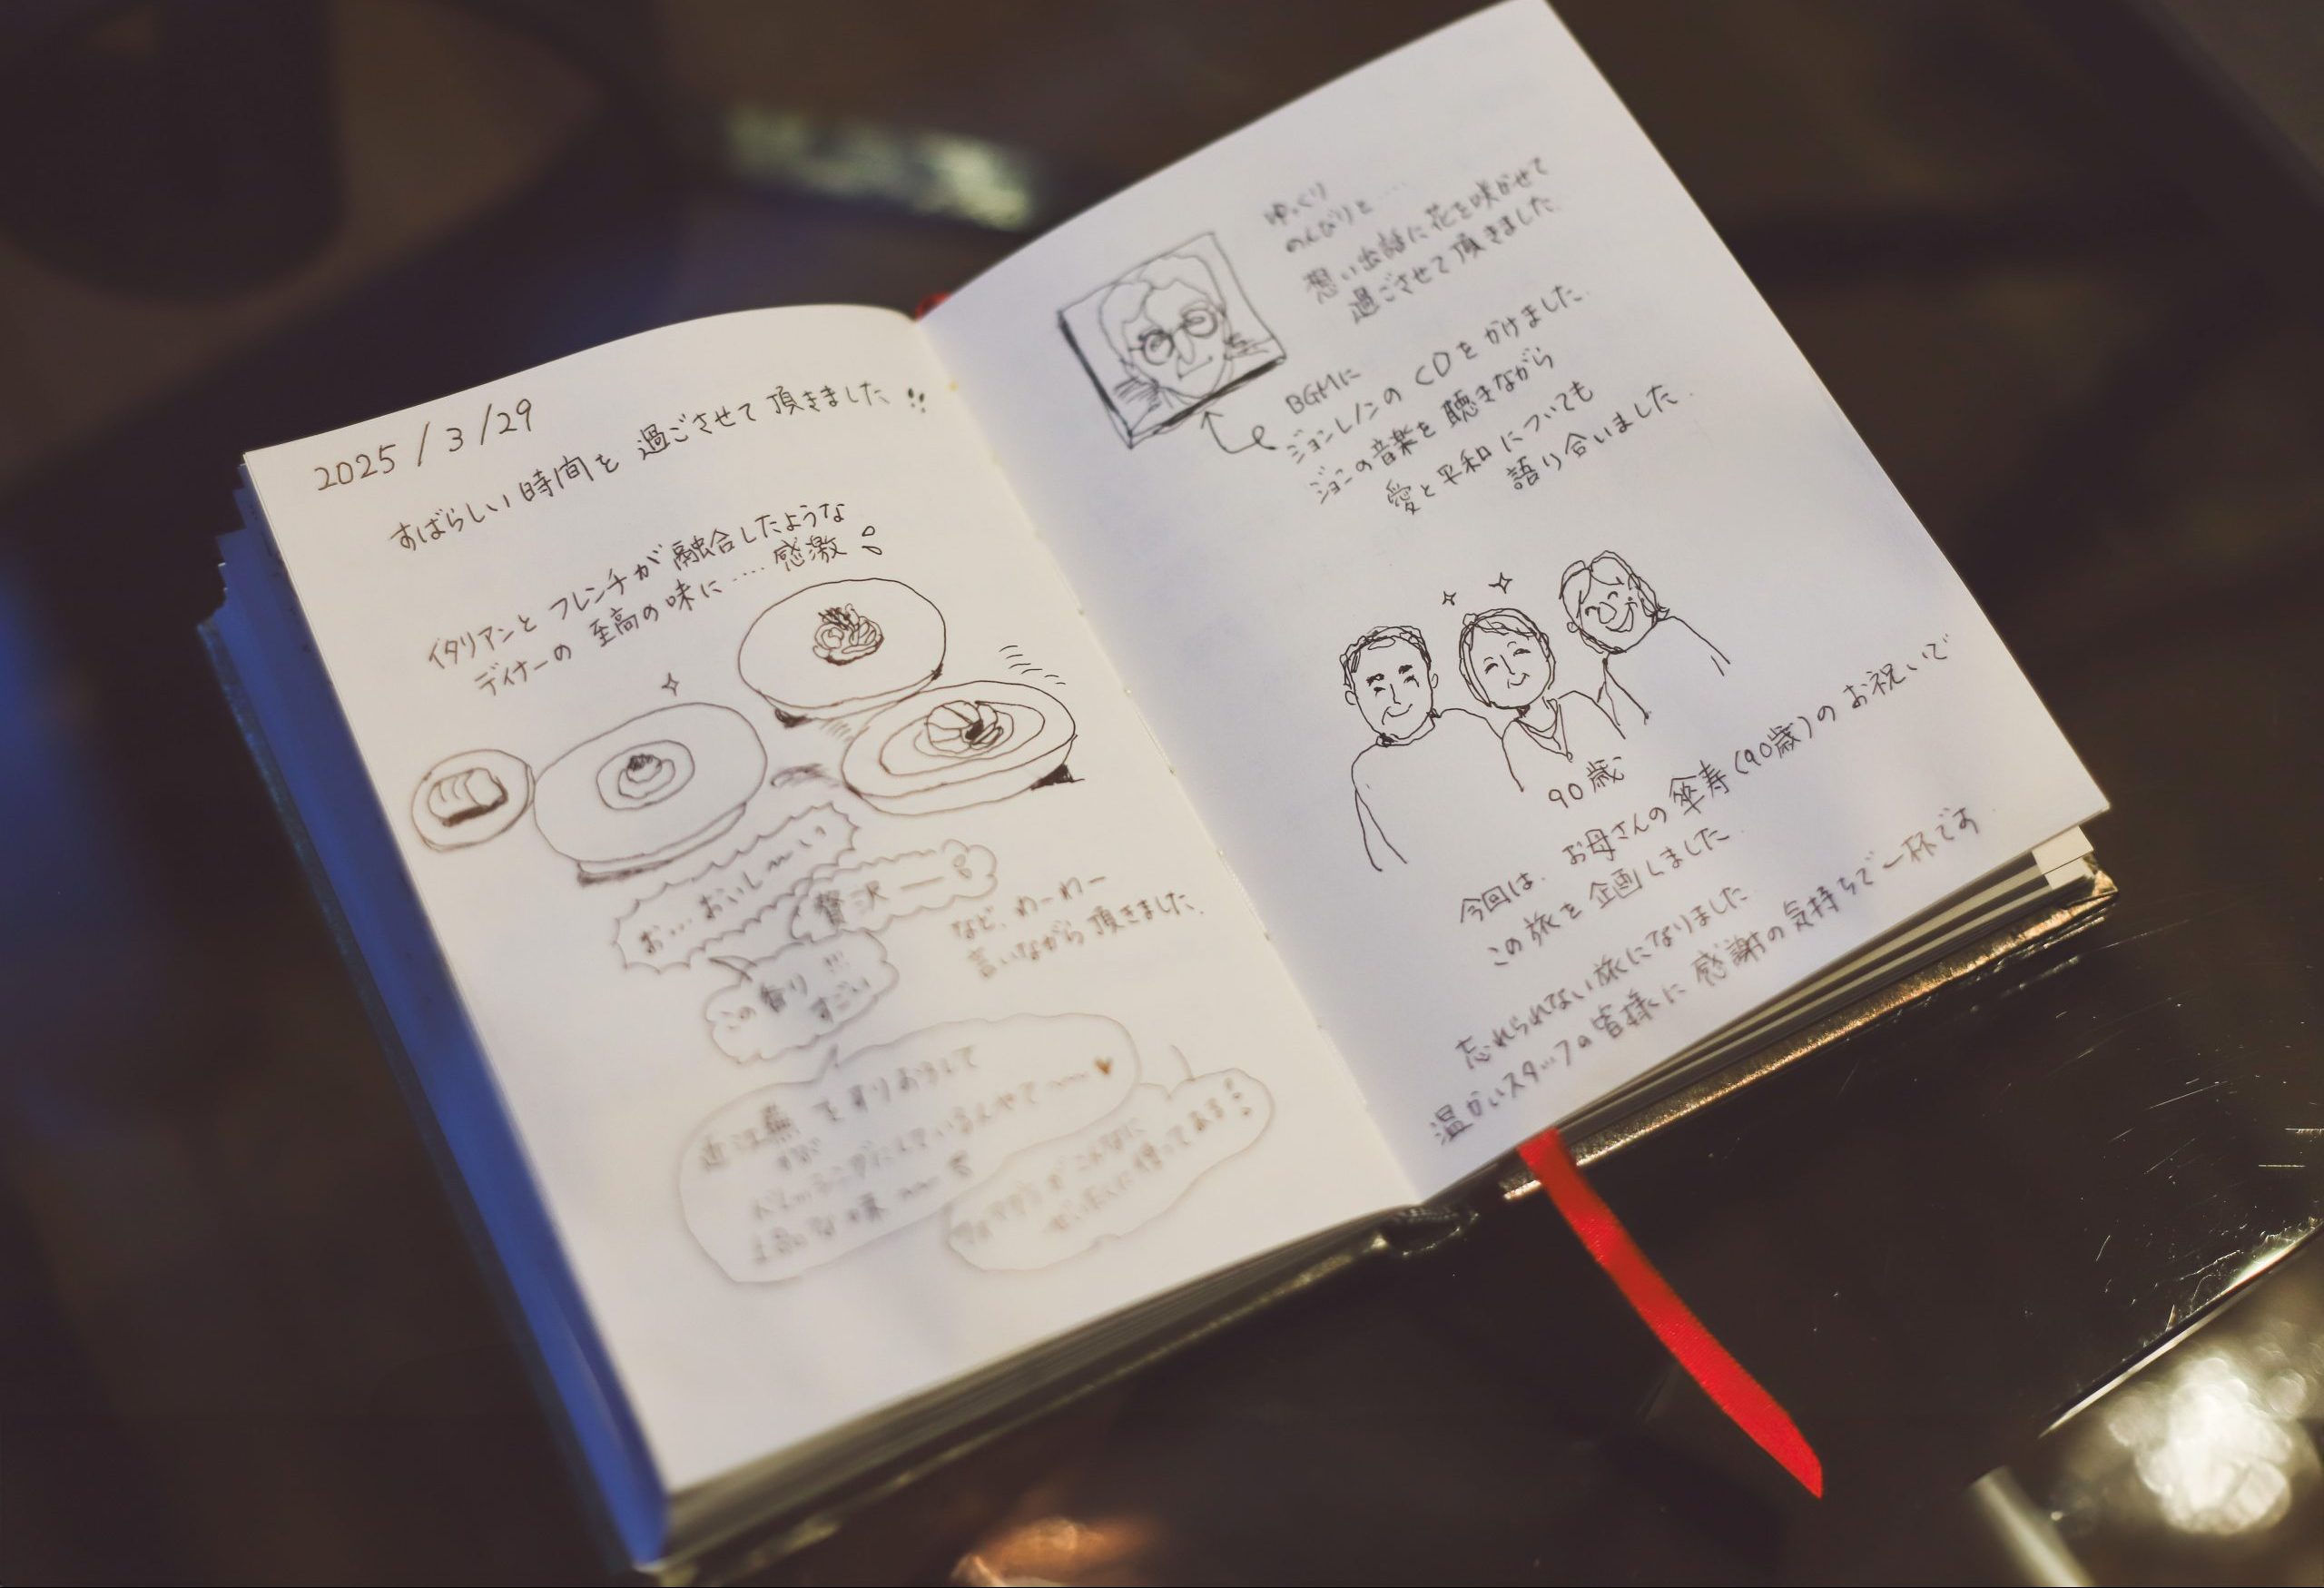 2025/3/29
すばらしい時間を過ごさせて頂きました!!
イタリアンとフレンチが融合したような
ディナーの至高の味に……感激
お…おいし〜〜い
贅沢ー
この香り!!
すごい
など、わーわー
言いながら頂きました。
近江蕪をすりおろして
ドレッシングにしているんやて〜〜♥
味〜〜
ゆっくり
のんびりと……
想い出話に花を咲かせて
過ごさせて頂きました。
BGMに
ジョンレノンのCDをかけました。
ジョンの音楽を聴きながら
愛と平和についても
語り合いました。
90歳
今回は、お母さんの傘寿(90歳)のお祝いで
この旅を企画しました
忘れられない旅になりました
温かいスタッフの皆様に感謝の気持ちで一杯です